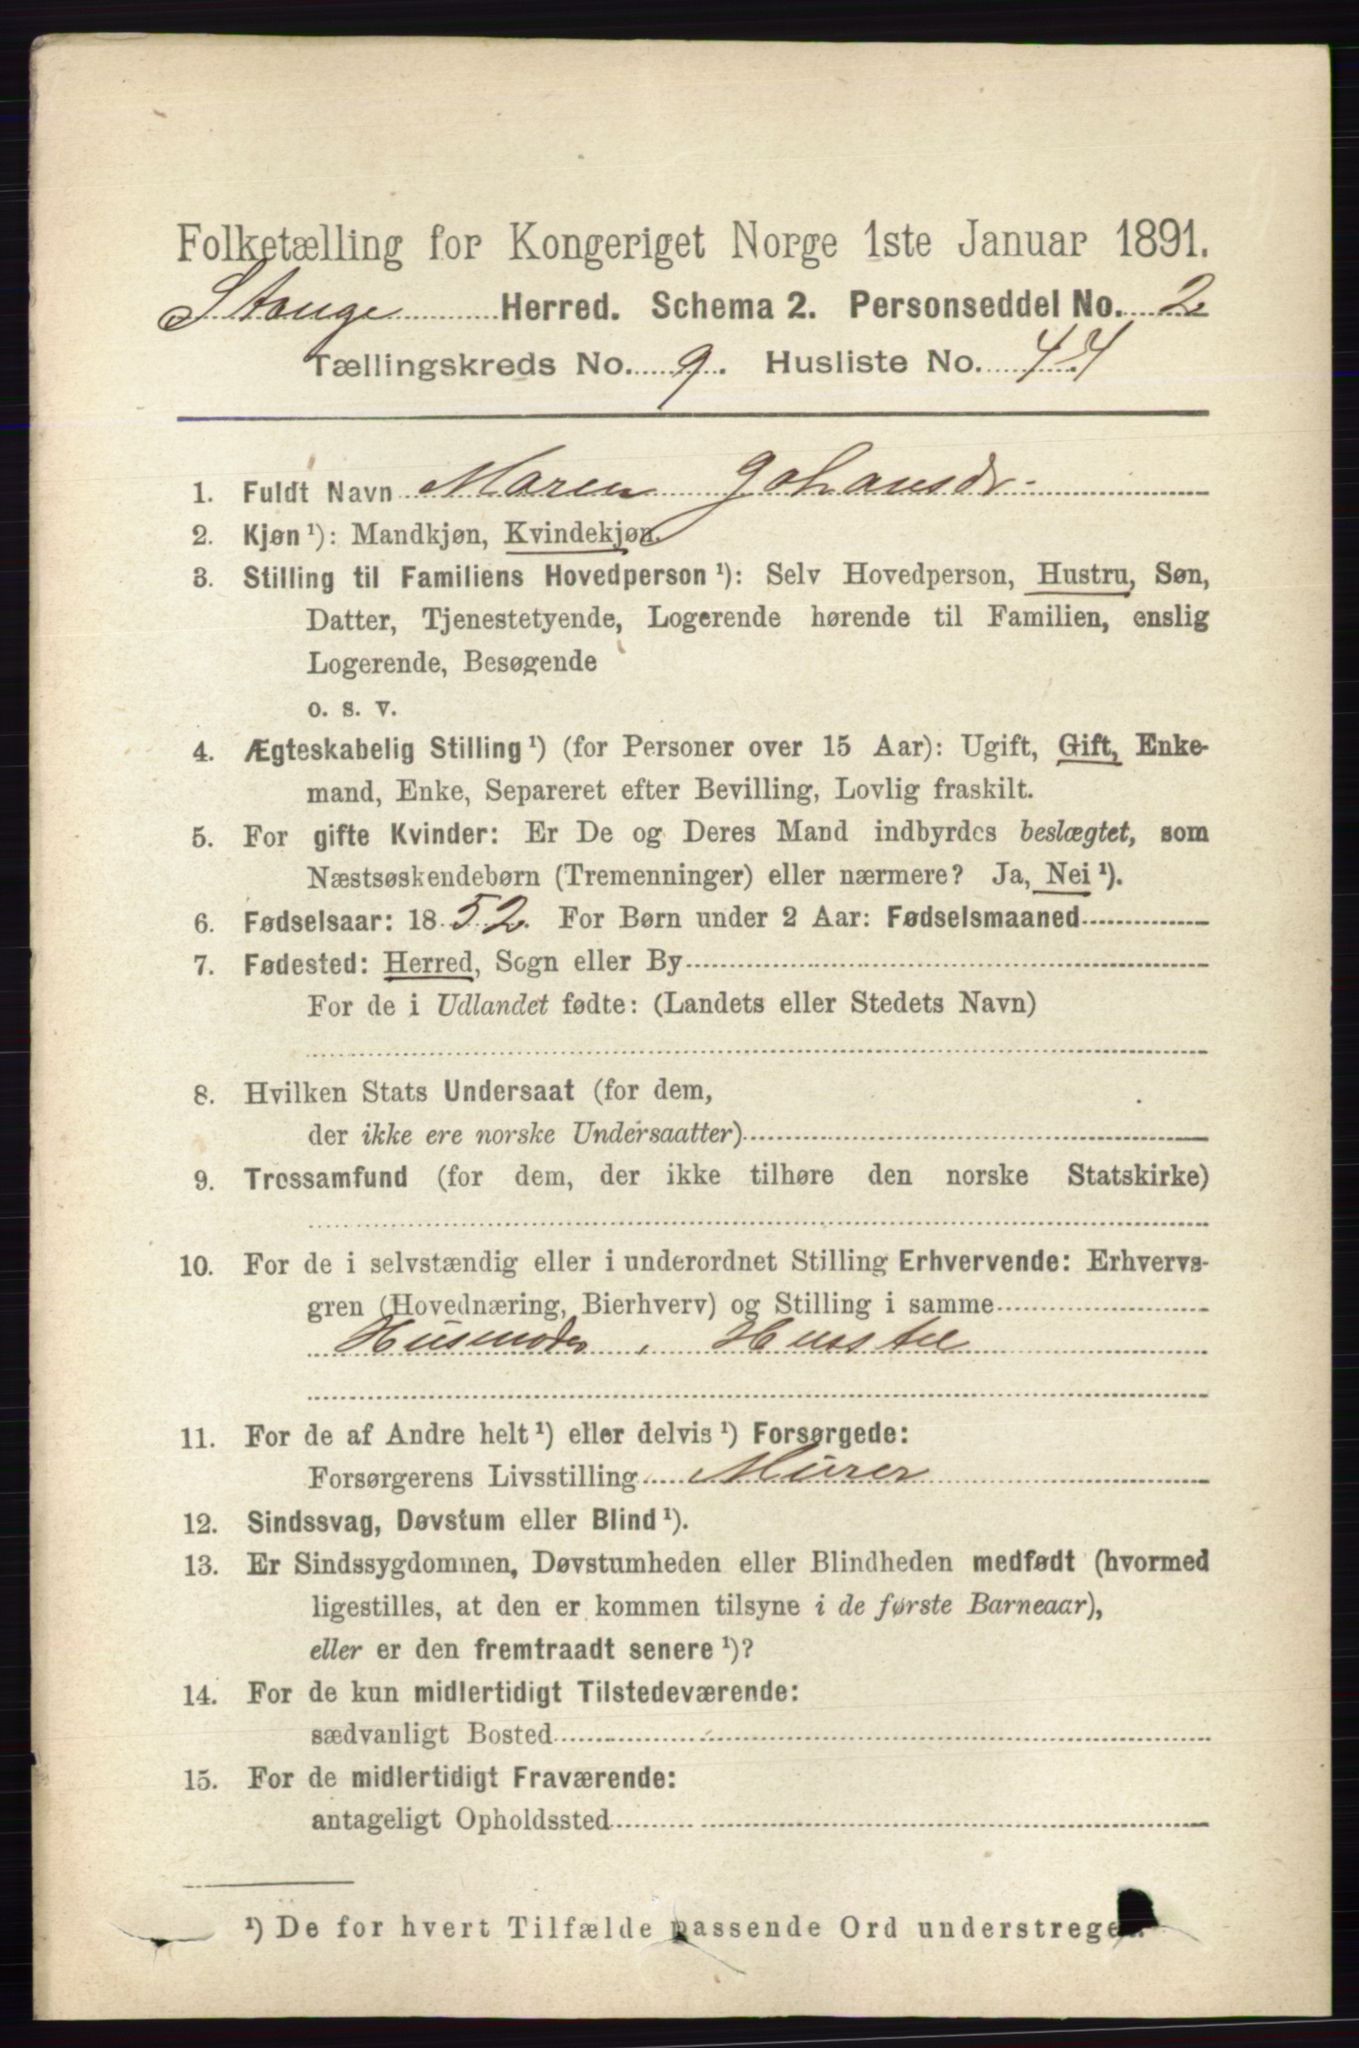 Folketælling for Kongeriget Norge 1ste Januar 1891.
Stange Herred. Schema 2. Personseddel No. 2
Tællingskreds No. 9. Husliste No. 44
1. Fuldt Navn Maren Johansdr
2. Kjøn ¹): Mandkjøn, Kvindekjøn.
3. Stilling til Familiens Hovedperson ¹): Selv Hovedperson, Hustru, Søn,
Datter, Tjenestetyende, Logerende hørende til Familien, enslig
Logerende, Besøgende
o. s. v.
4. Ægteskabelig Stilling ¹) (for Personer over 15 Aar): Ugift, Gift, Enke-
mand, Enke, Separeret efter Bevilling, Lovlig fraskilt.
5. For gifte Kvinder: Er De og Deres Mand indbyrdes beslægtet, som
Næstsøskendebørn (Tremenninger) eller nærmere? Ja, Nei ¹).
6. Fødselsaar: 1852. For Børn under 2 Aar: Fødselsmaaned
7. Fødested: Herred, Sogn eller By
For de i Udlandet fødte: (Landets eller Stedets Navn)
8. Hvilken Stats Undersaat (for dem,
der ikke ere norske Undersaatter)
9. Trossamfund (for dem, der ikke tilhøre den norske Statskirke)
10. For de i selvstændig eller i underordnet Stilling Erhvervende: Erhvervs-
gren (Hovednæring, Bierhverv) og Stilling i samme
Husmoder,
11. For de af Andre helt ¹) eller delvis ¹) Forsørgede:
Forsørgerens Livsstilling Murer
12. Sindssvag, Døvstum eller Blind ¹).
13. Er Sindssygdommen, Døvstumheden eller Blindheden medfødt (hvormed
ligestilles, at den er kommen tilsyne i de første Barneaar),
eller er den fremtraadt senere ¹)?
14. For de kun midlertidigt Tilstedeværende:
sædvanligt Bosted
15. For de midlertidigt Fraværende:
antageligt Opholdssted
¹) De for hvert Tilfælde passende Ord understreges.